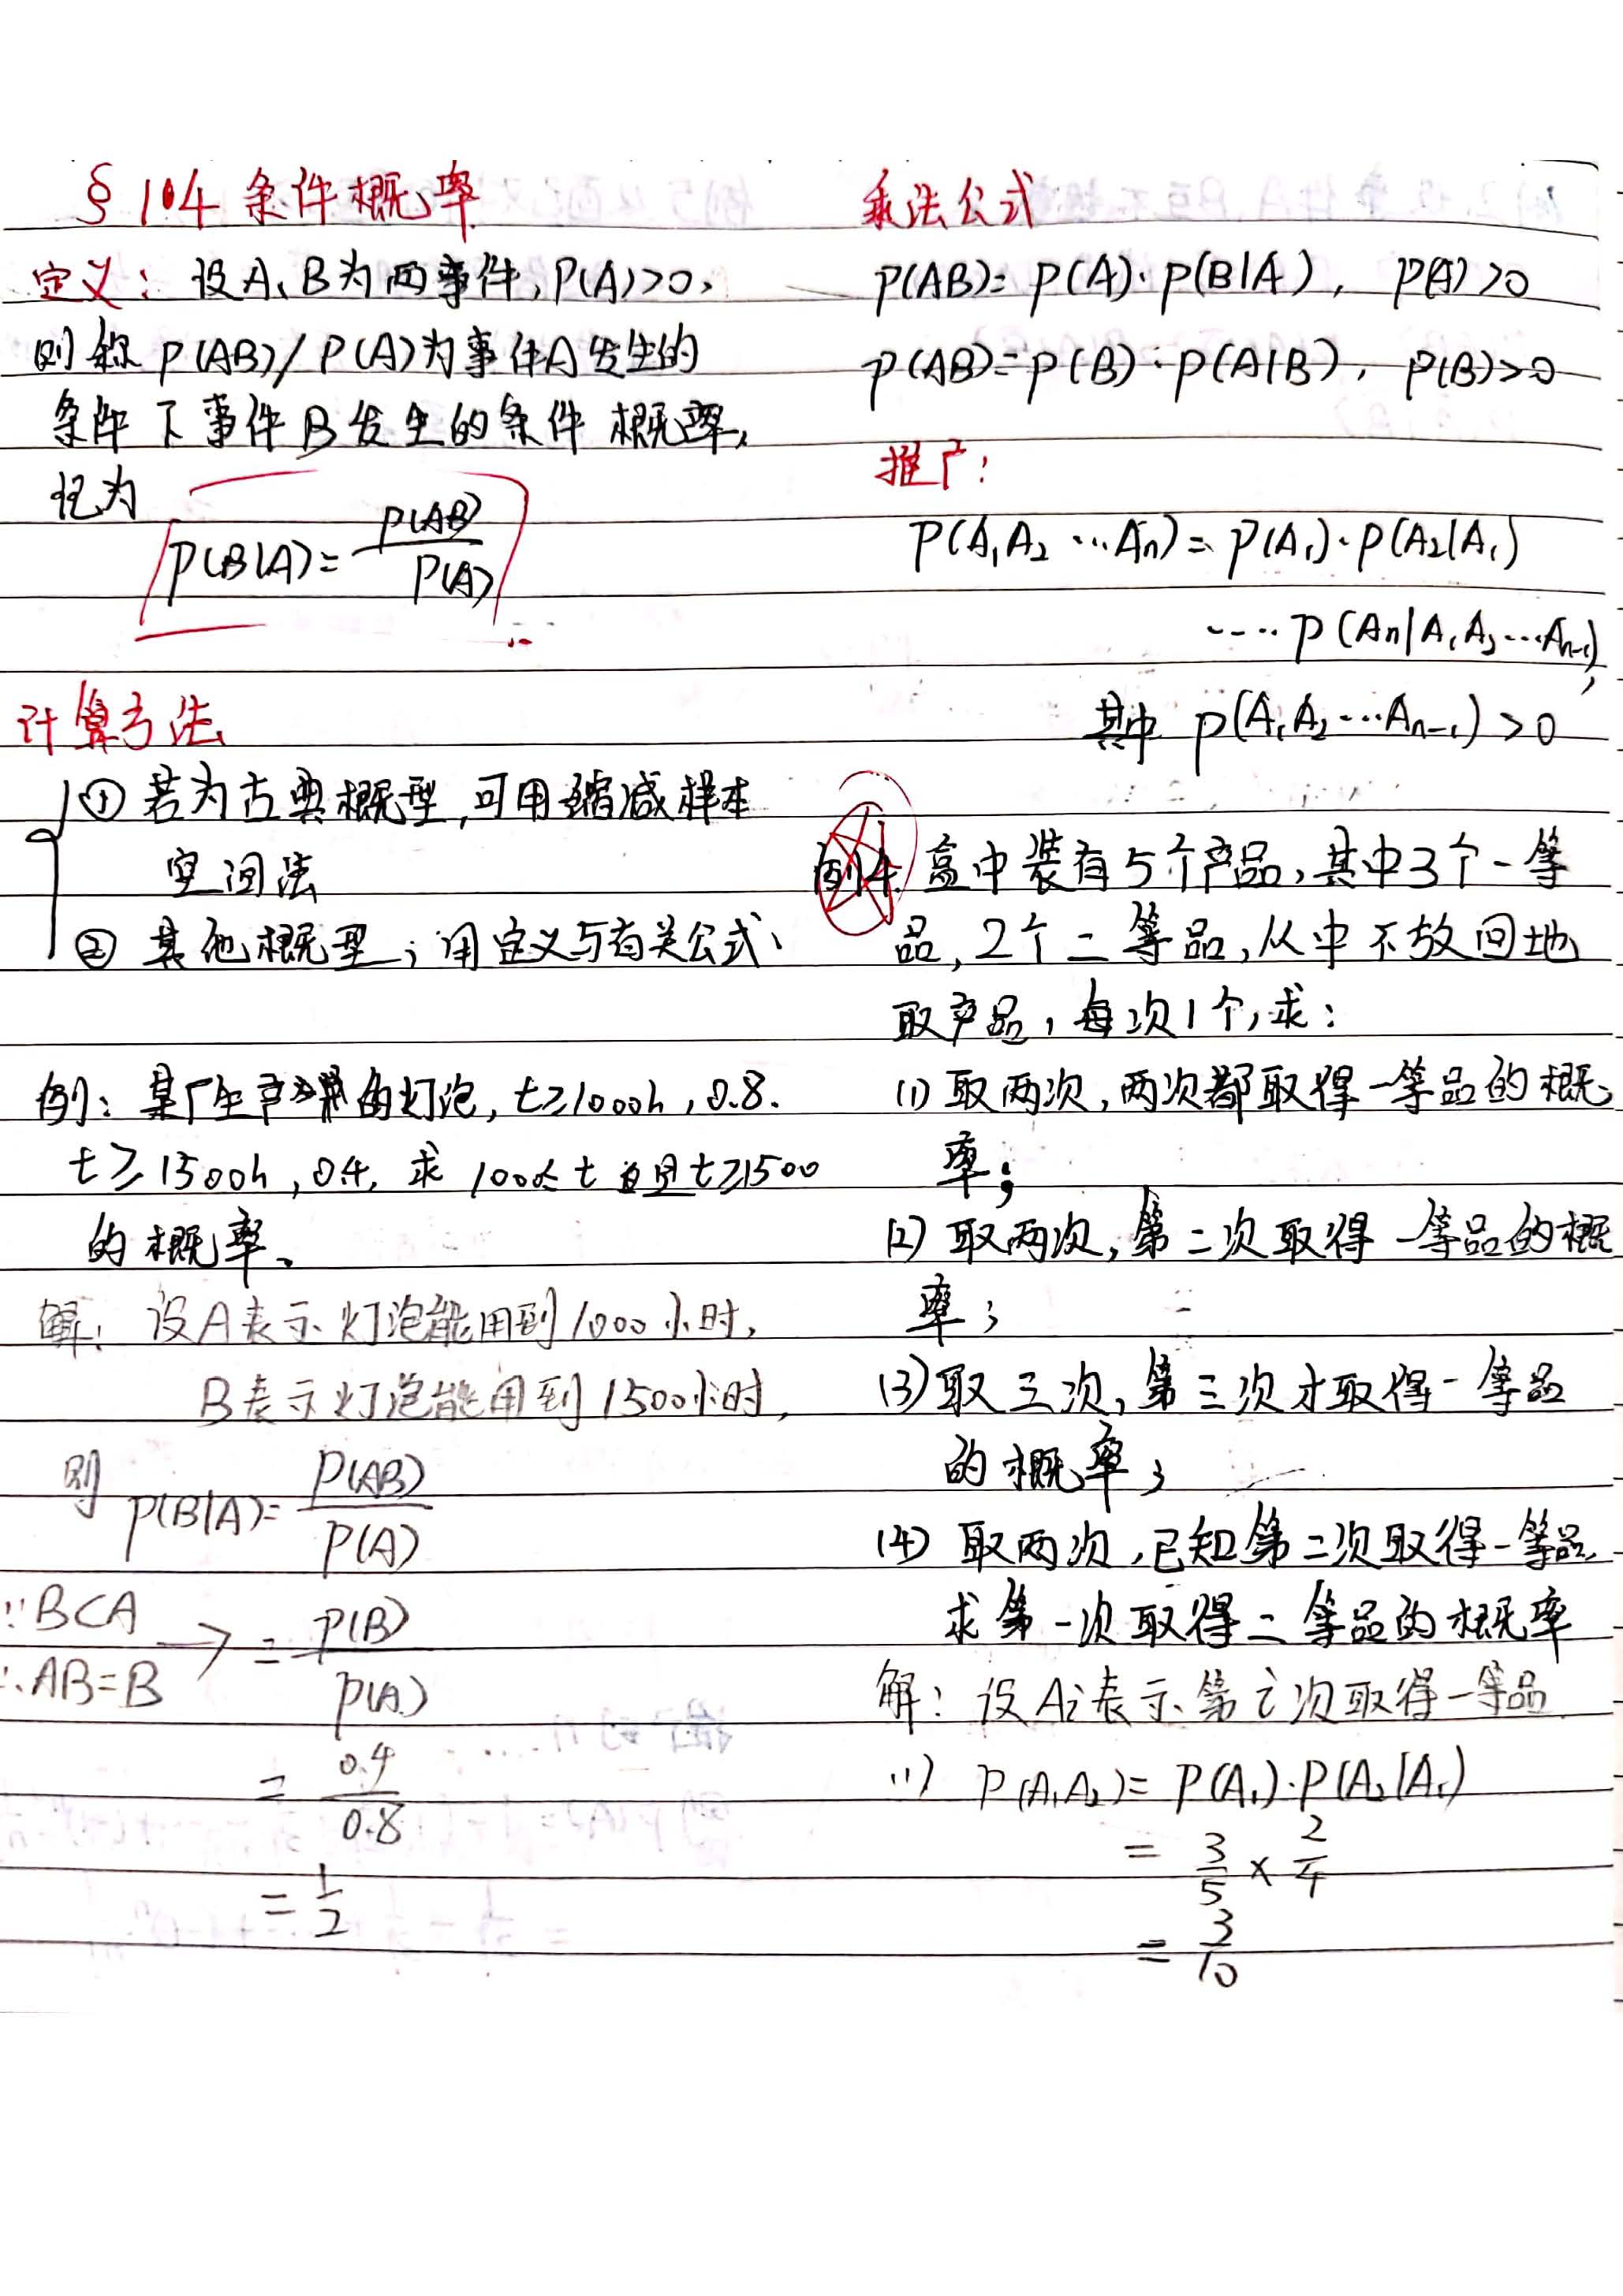 §1.4 条件概率
定义：设A、B为两事件，P(A)>0，
则称 P(AB)/P(A)为事件A发生的
条件下事件B发生的条件概率，
记为
P(B|A)= P(AB)/P(A)
计算方法
① 若为古典概型，可用缩减样本
空间法
② 其他概型；用定义与有关公式、
例：某厂生产的灯泡，t≥1000h，0.8.
t≥1500h，0.4，求 1000≤t 且t≥1500
的概率、
解：设A表示灯泡能用到1000小时，
B表示灯泡能用到1500小时，
则 P(B|A)= P(AB)/P(A)
∵B⊂A
∴AB=B → = P(B)/P(A)
= 0.4/0.8
= 1/2
乘法公式
P(AB)=P(A)·P(B|A)，P(A)>0
P(AB)=P(B)·P(A|B)，P(B)>0
推广：
P(A₁A₂…Aₙ)=P(A₁)·P(A₂|A₁)
……P(Aₙ|A₁A₂…Aₙ₋₁)，
其中 P(A₁A₂…Aₙ₋₁)>0
例4. 盒中装有5个产品，其中3个一等
品，2个二等品，从中不放回地
取产品，每次1个，求：
(1) 取两次，两次都取得一等品的概
率；
(2) 取两次，第二次取得一等品的概
率；
(3) 取三次，第三次才取得一等品
的概率；
(4) 取两次，已知第二次取得一等品，
求第一次取得二等品的概率
解：设Ai表示第i次取得一等品
(1) P(A₁A₂)=P(A₁)·P(A₂|A₁)
= 3/5 × 2/4
= 3/10